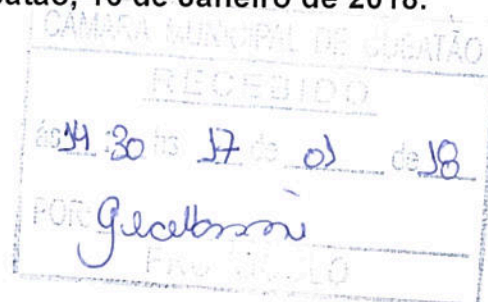 atão, 16 de Janeiro de 2018.
CÂMARA MUNICIPAL DE CUBATÃO
RECEBIDO
às 14 30 hs 17 de 01 de 18
POR:
PROTOCOLO